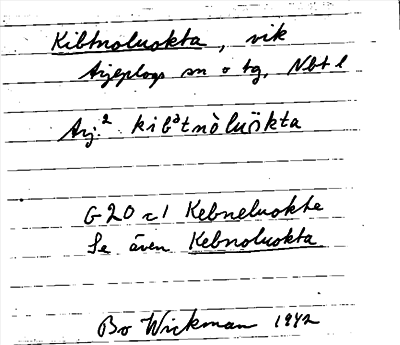 Kibtnoluokta, vik
Arjeplogs sn o tg, Nbt l
Arj.² kibᵊtnòluökta
G20 c1 Kebneluokte
Se även Kebnoluokta
Bo Wickman 1942